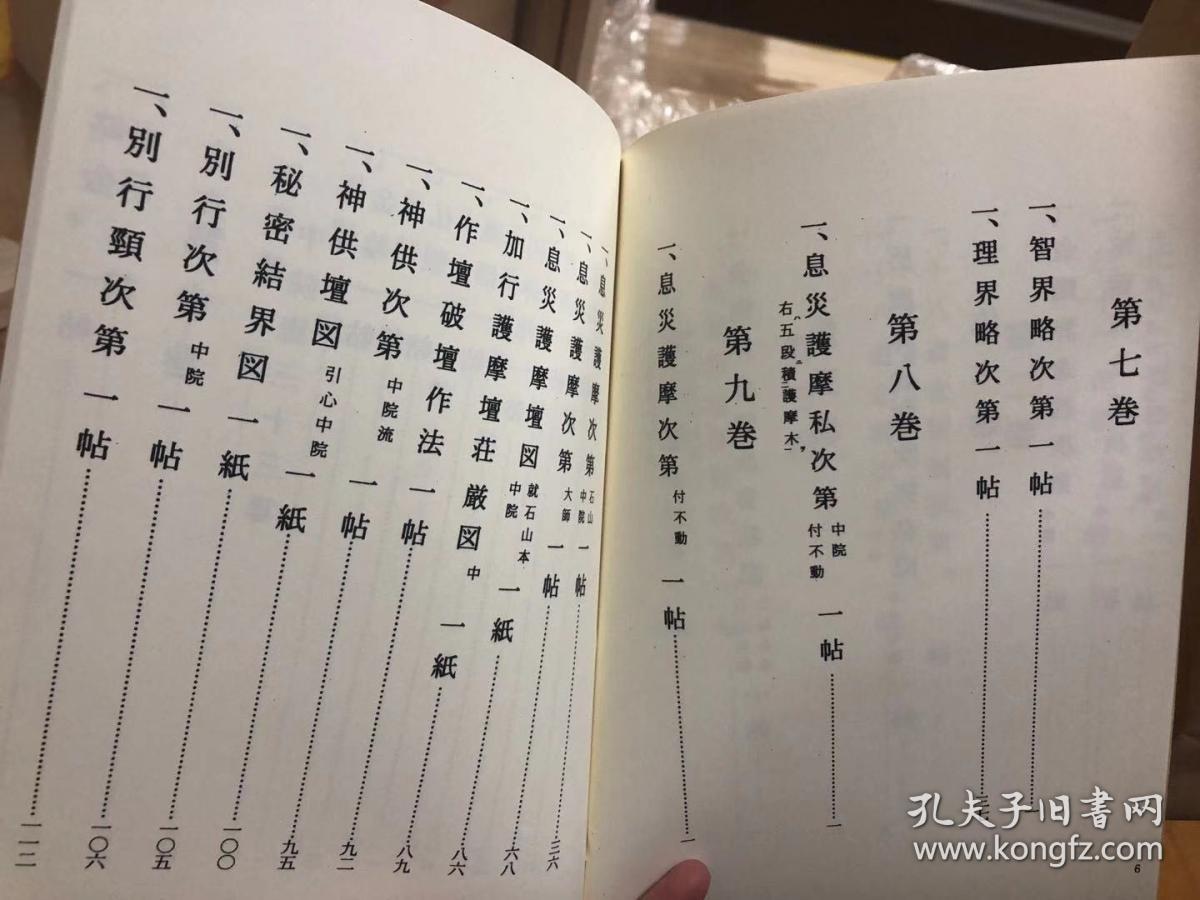 第七巻
一、智界略次第 一帖……………一
一、理界略次第 一帖……………
第八巻
一、息災護摩私次第 中院 付不動 一帖……………一
右ハ五段ニ積ニ護摩木一ヲ
第九巻
一、息災護摩次第 付不動 一帖……………一
6
一、息災護摩次第 石山 中院 一帖……………三六
一、息災護摩次第 大師 一帖……………六八
一、息災護摩壇図 就石山本 中院 一紙……………八六
一、加行護摩壇荘厳図 中 一紙……………八九
一、作壇破壇作法 一帖……………九二
一、神供次第 中院流 一帖……………九五
一、神供壇図 引心中院 一紙……………一〇〇
一、秘密結界図 一紙……………一〇五
一、別行次第 中院 一帖……………一〇六
一、別行頸次第 一帖……………一一二
孔夫子旧书网
www.kongfz.com